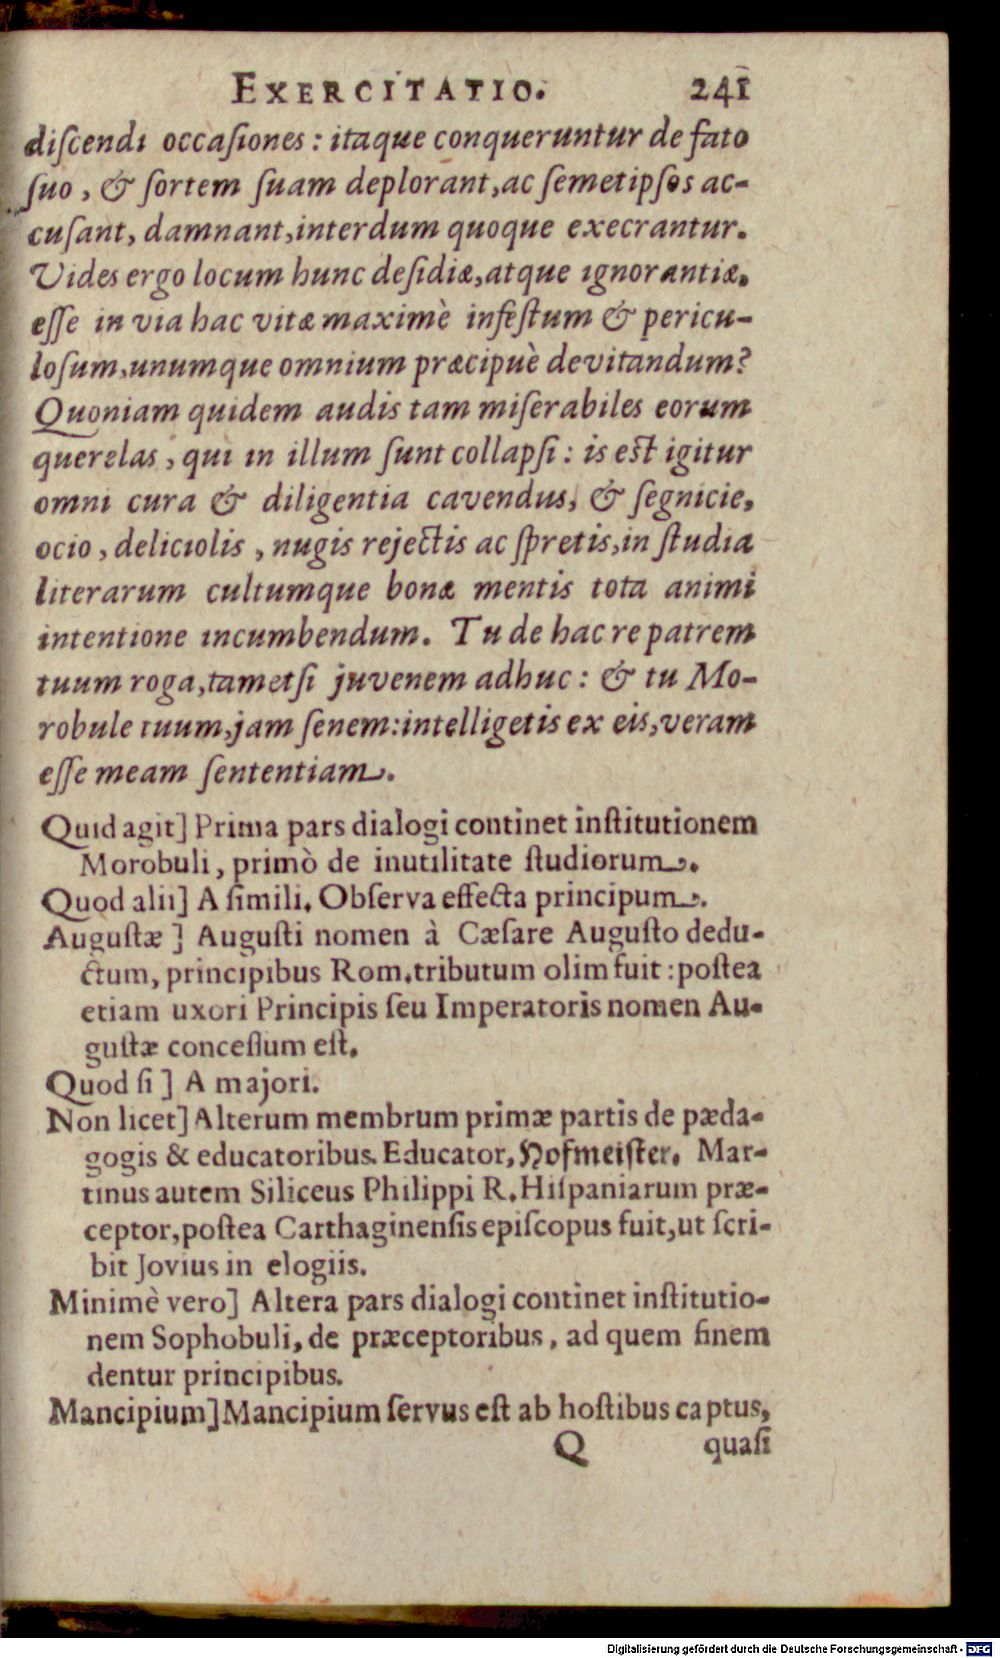 EXERCITATIO. 241
diſcendi occaſiones: itaque conqueruntur de fato
ſuo, & ſortem ſuam deplorant, ac ſemetipſos ac-
cuſant, damnant, interdum quoque execrantur.
Vides ergo locum hunc deſidiæ, atque ignorantiæ.
eſſe in via hac vitæ maximè infeſtum & pericu-
loſum, unumque omnium præcipuè devitandum?
Quoniam quidem audis tam miſerabiles eorum
querelas, qui in illum ſunt collapſi: is eſt igitur
omni cura & diligentia cavendus, & ſegnicie,
ocio, deliciolis, nugis rejectis ac ſpretis, in ſtudia
literarum cultumque bonæ mentis tota animi
intentione incumbendum. Tu de hac re patrem
tuum roga, tametſi juvenem adhuc: & tu Mo-
robule tuum, jam ſenem: intelligetis ex eis, veram
eſſe meam ſententiam.
Quid agit] Prima pars dialogi continet inſtitutionem
Morobuli, primò de inutilitate ſtudiorum.
Quod alii] A ſimili. Obſerva effecta principum.
Auguſtæ] Auguſti nomen à Cæſare Auguſto dedu-
ctum, principibus Rom. tributum olim fuit: poſtea
etiam uxori Principis ſeu Imperatoris nomen Au-
guſtæ conceſſum eſt.
Quod ſi] A majori.
Non licet] Alterum membrum primæ partis de pæda-
gogis & educatoribus. Educator, Hofmeiſter. Mar-
tinus autem Siliceus Philippi R. Hiſpaniarum præ-
ceptor, poſtea Carthaginenſis epiſcopus fuit, ut ſcri-
bit Jovius in elogiis.
Minimè vero] Altera pars dialogi continet inſtitutio-
nem Sophobuli, de præceptoribus, ad quem finem
dentur principibus.
Mancipium] Mancipium ſervus eſt ab hoſtibus captus,
Q quaſi
Digitalisierung gefördert durch die Deutsche Forschungsgemeinschaft - DFG